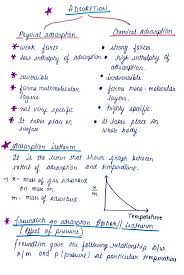 ADSORPTION
Physical adsorption
Chemical adsorption
• weak force
• strong forces
• Low enthalpy of adsorption
• high enthalpy of adsorption.
• reversible
• irreversible.
• forms multimolecular layers
• forms mono-molecular layers.
• not very specific
• highly specific.
• It takes place on surface
• it takes place in whole body.
Adsorption isotherm
It is the curve that shows graph between
extent of adsorption and temperature.
→ x - mass of gas adsorbed
on mass m.
m - mass of
x/m
Temperature
Freundlich
(effect of pressure)
Freundlich gave the following relationship b/w
x/m and p (pressure) at particular temperature